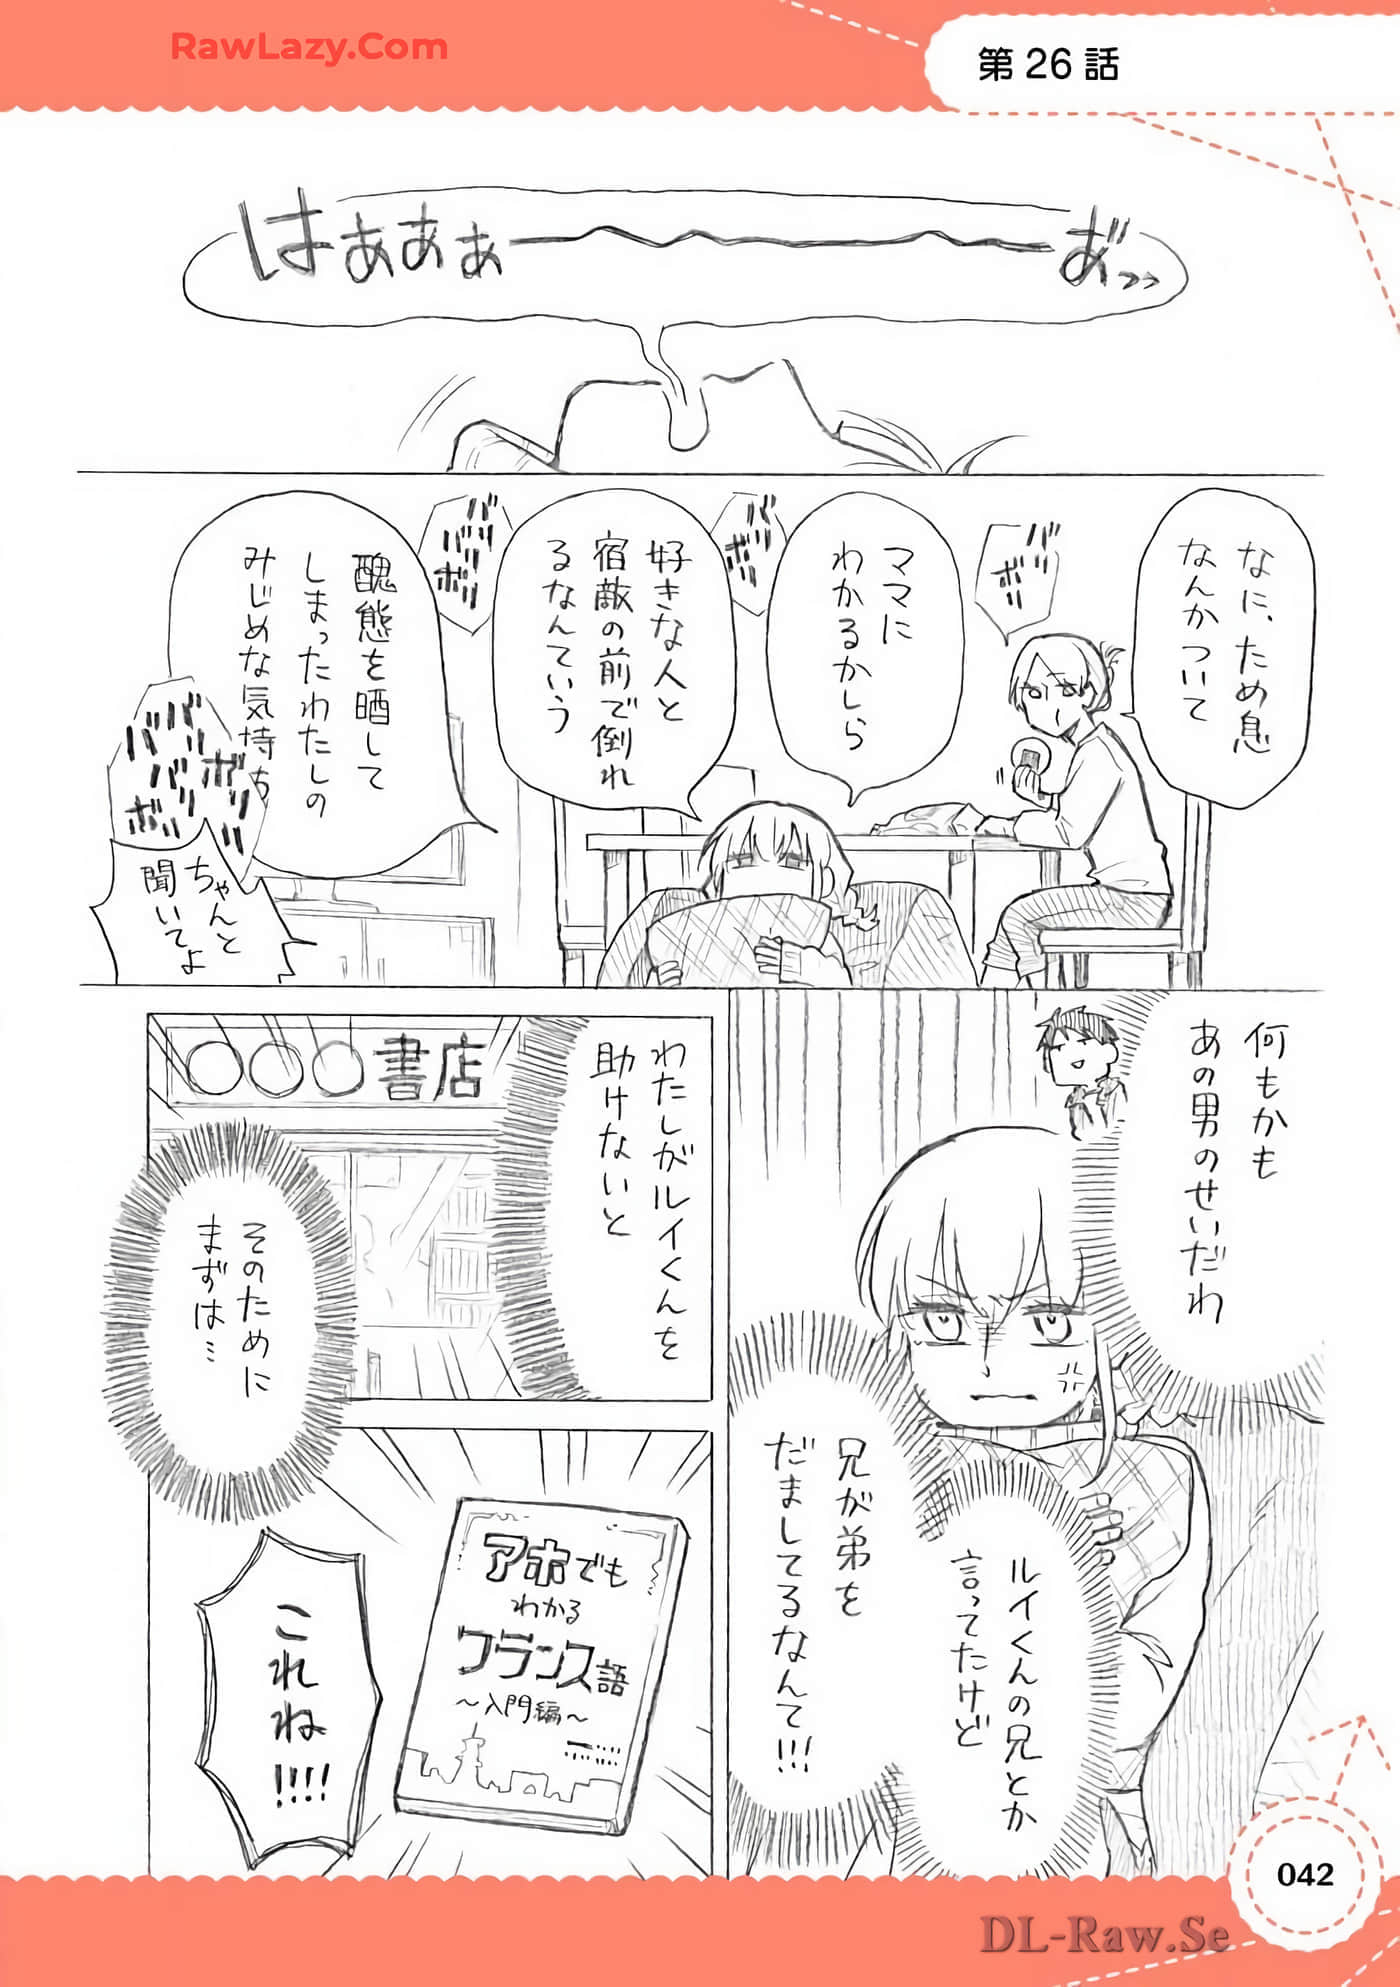 RawLazy.Com
第26話
はぁあぁーーーあ゛っっ
なに、ため息
なんかついて
バリ
ボリ
ママに
わかるかしら
バリ
ボリ
好きな人と
宿敵の前で倒れ
るなんていう
バリ
バリ
ボリ
醜態を晒して
しまったわたしの
みじめな気持ち
バリ
バリ
バリ
ボリ
ボリ
ちゃんと
聞いてよ
何もかも
あの男のせいだわ
ルイくんの兄とか
言ってたけど
兄が弟を
だましてるなんて!!!
わたしがルイくんを
助けないと
〇〇〇書店
そのために
まずは…
アホでも
わかる
フランス語
〜入門編〜
これね!!!!
042
DL-Raw.Se